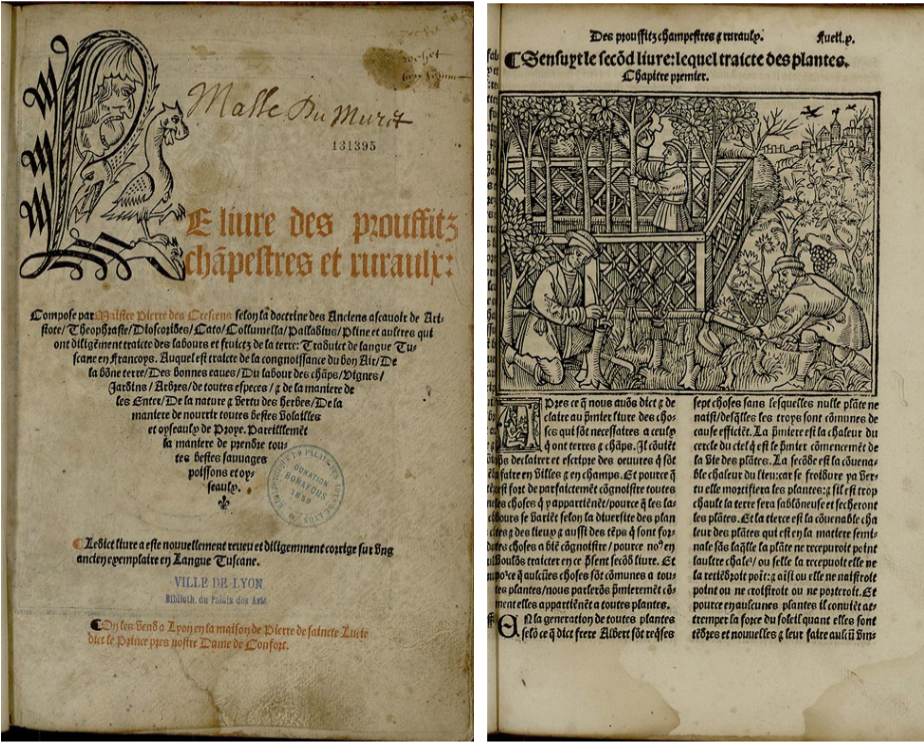 Malle Du Muret
131395
LE liure des prouffitz
chãpestres et ruraulx:
Compose par Maistre Pierre des Crescens selon la doctrine des Anciens ascauoir de Ari-
stote/Theophraste/Dioscorides/Cato/Collumella/Palladius/Pline et aultres qui
ont diligẽment traicte des labours et fruictz de la terre: Traduict de langue Tu-
scane en francoys. Auquel est traicte de la congnoissance du bon Air/De
la bõne terre/Des bonnes eaues/Du labour des chãps/Vignes/
Jardins/Arbres/de toutes especes/⁊ de la maniere de
les Enter/De la nature ⁊ vertu des herbes/De la
maniere de nourrir toutes bestes Volailles
et oyseaulx de Proye. Pareillemẽt
la maniere de prendre tou-
tes bestes sauuages
poissons et oy-
seaulx.
BIBLIOTHEQUE DU PALAIS DES ARTS
DONATION
BONAFOUS
1859
Ledict liure a este nouuellement reueu et diligemment corrige sur vng
ancien exemplaire en Langue Tuscane.
VILLE DE LYON
Biblioth. du Palais des Arts
On les vend a Lyon en la maison de Pierre de saincte Lucie
dict le Prince pres nostre Dame de Confort.
Des prouffitz champestres ⁊ ruraulx. Fueil. x.
Sensuyt le secõd liure: lequel traicte des plantes.
Chapitre premier.
APres ce q̃ nous auõs dict ⁊ de
claire au p̃mier liure des cho-
ses qui sõt necessaires a ceulx
q̃ ont terres ⁊ chãps. Il cõuiẽt
declairer et escripre des oeuures q̃ sõt
a faire en villes ⁊ en champs. Et pource q̃
est fort de parfaictemẽt cõgnoistre toutes
les choses q̃ y appartiẽnẽt/pource q̃ les la-
bours se variẽt selon la diuersite des plan
tes ⁊ des lieux ⁊ aussi des tẽps q̃ sont for-
tes choses a biẽ cõgnoistre/pource no⁹ en
voulõs traicter en ce p̃sent secõd liure. Et
po²ce q̃ aulcũes choses sõt cõmunes a tou-
tes plantes/nous parlerõs p̃mieremẽt cõ-
ment elles appartiẽnẽt a toutes plantes.
EN la generation de toutes plantes
selõ ce q̃ dict frere Albert sõt req̃ses
sept choses sans lesquelles nulle plãte ne
naist/desq̃lles les troys sont cõmunes de
cause efficiẽt. La p̃miere est la chaleur du
cercle du ciel q̃ est le p̃mier cõmencemẽt de
la vie des plãtes. La secõde est la cõuena-
ble chaleur du lieu: car se froidure ya ver-
tu elle mortifiera les plantes: ⁊ sil est trop
chault la terre sera sablõneuse et secheront
les plãtes. Et la tierce est la cõuenable cha
leur des plãtes qui est en la matiere semi-
nale sãs laq̃lle la plãte ne recepuroit point
laultre chale²/ou selle la recepuoit elle ne
la retiẽdroit poĩt: ⁊ aĩsi ou elle ne naistroit
point ou ne croistroit ou ne porteroit. Et
pource en aulcunes plantes il conuiẽt at-
tremper la force du soleil quant elles sont
tẽdres et nouuelles ⁊ leur faire aulcũ vm-